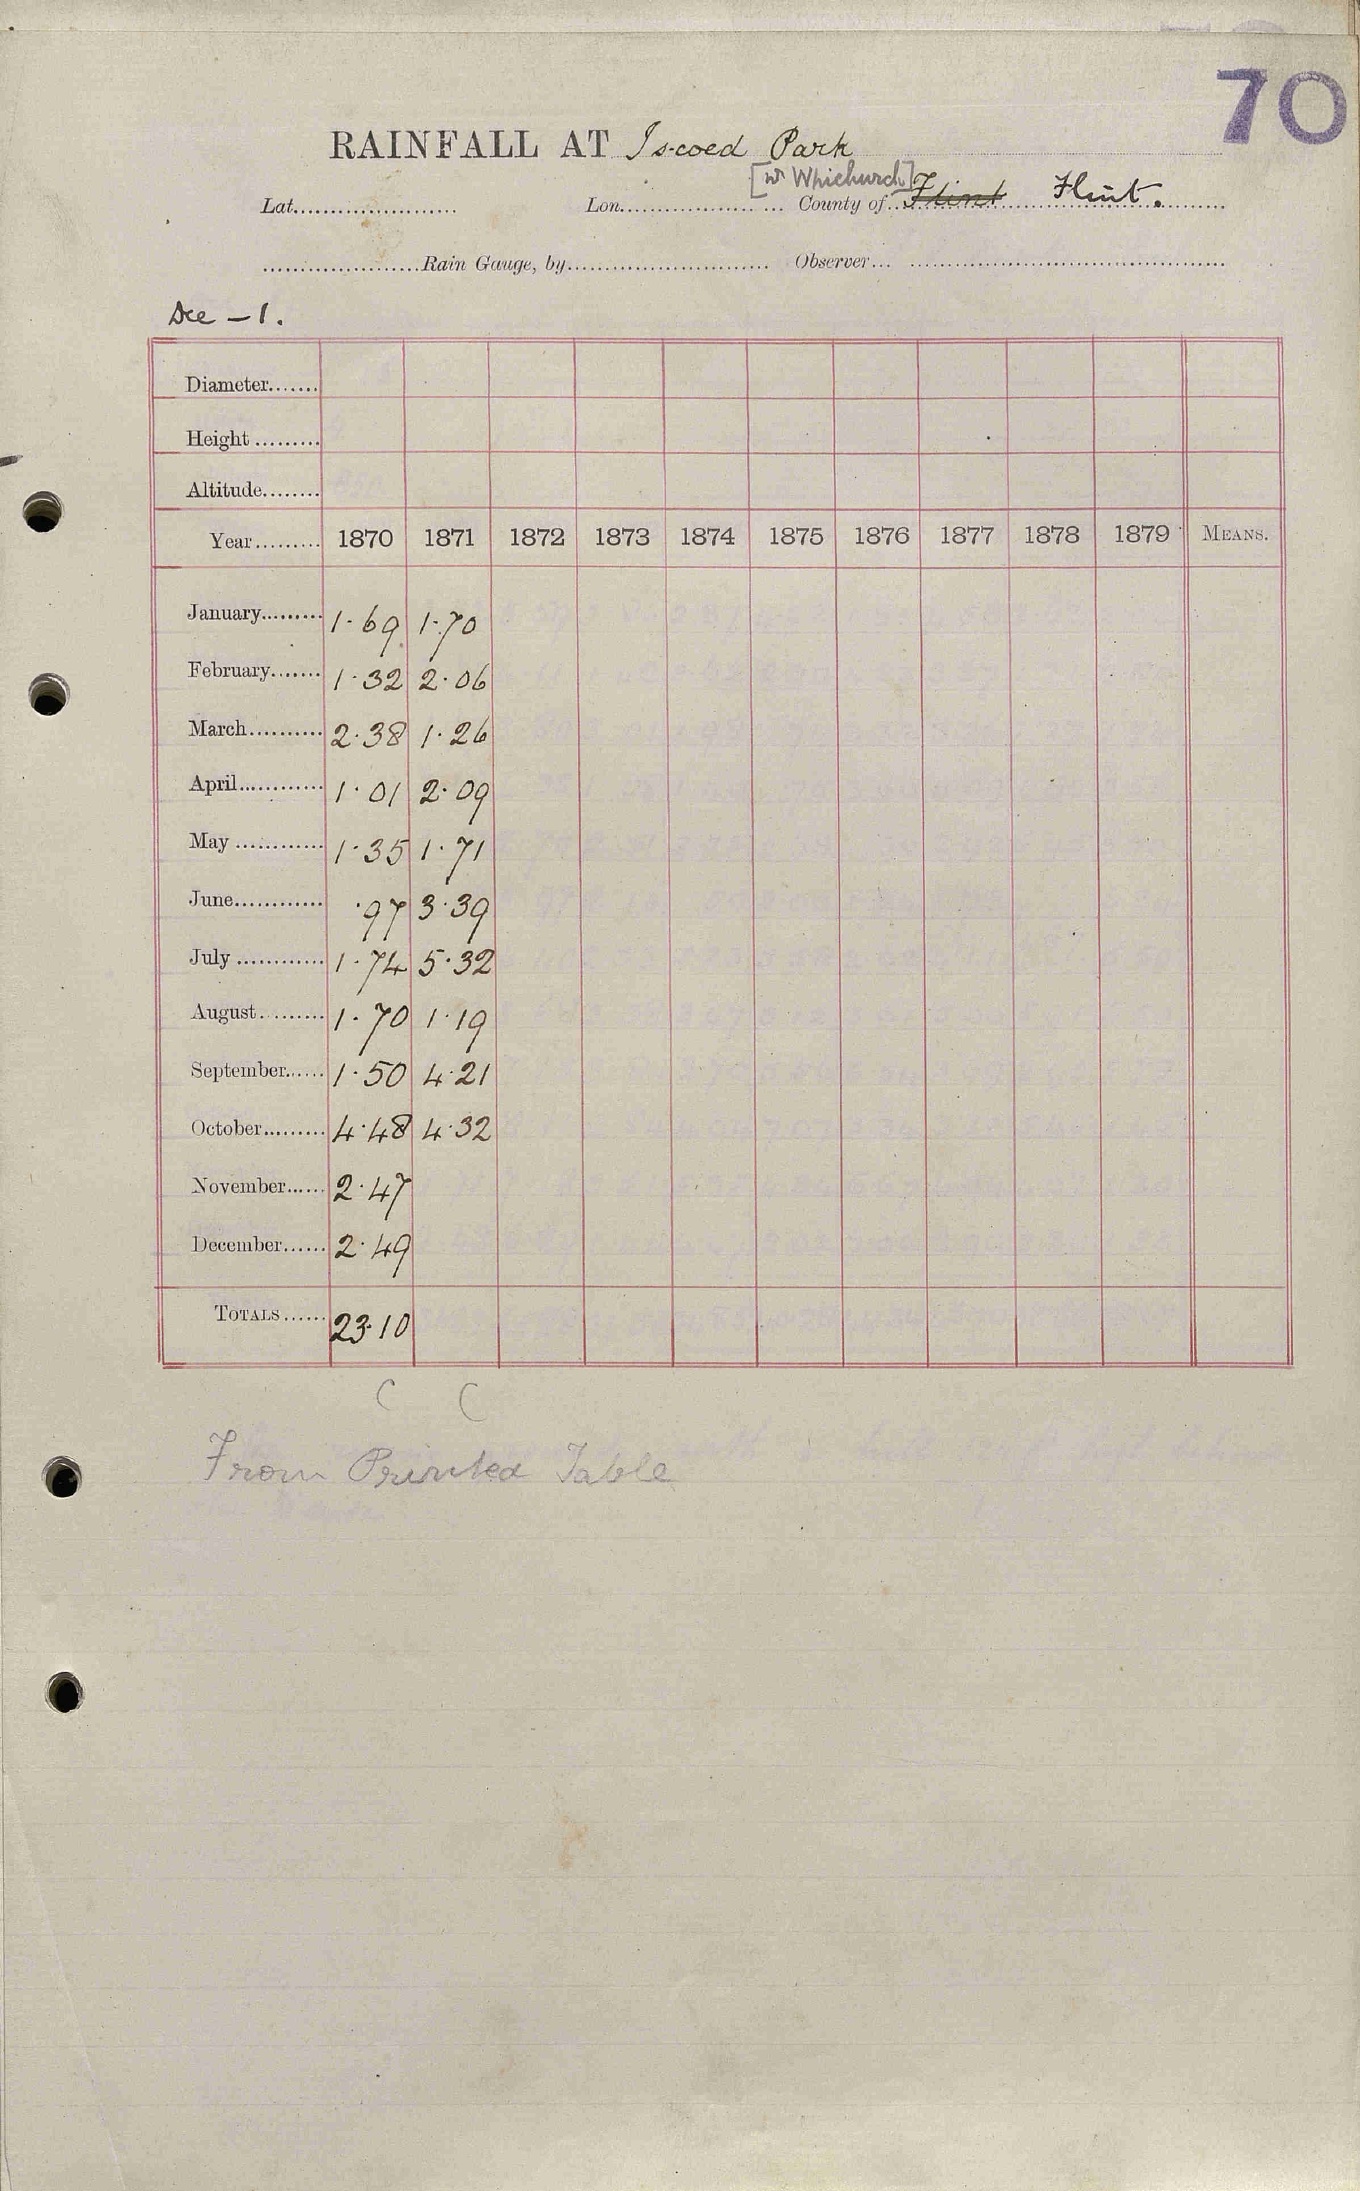 70
RAINFALL AT Is-coed Park
[nr Whichurch]
Lat. Lon. County of Flint Flint.
Rain Gauge, by Observer
Dee - 1.
Diameter
Height
Altitude
Year 1870 1871 1872 1873 1874 1875 1876 1877 1878 1879 MEANS.
January 1.69 1.70
February 1.32 2.06
March 2.38 1.26
April 1.01 2.09
May 1.35 1.71
June .97 3.39
July 1.74 5.32
August 1.70 1.19
September 1.50 4.21
October 4.48 4.32
November 2.47
December 2.49
TOTALS 23.10
C C
From Printed Table